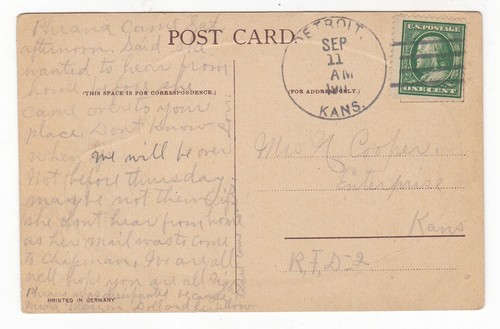 came Sat
afternoon. Said she
wanted to hear from
home
came over to your
place. Don't know
when we will be over
Not before thursday
maybe not then if
she don't hear from home
as her mail was to come
to Chapman. We are all
well hope you are all
PRINTED IN GERMANY
POST CARD
(THIS SPACE IS FOR CORRESPONDENCE.)
(FOR ADDRESS ONLY.)
DETROIT,
SEP
11
AM
KANS.
U.S. POSTAGE
ONE CENT
Mrs N Cooper
Enterprise
Kans
R.F.D-2